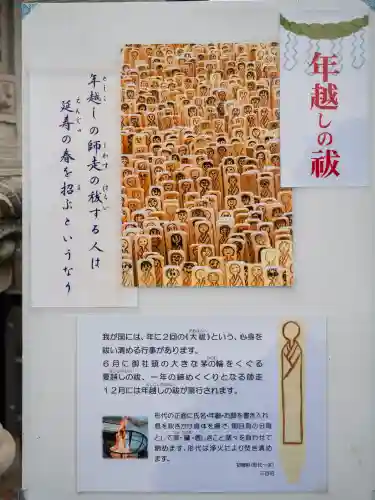 年越しの祓
年越しの師走の祓する人は
延寿の春を招ぶというなり
我が国には、年に2回の《大祓》という、心身を
祓い清める行事があります。
6月に御社頭の大きな茅の輪をくぐる
夏越しの祓、一年の締めくくりとなる師走
12月には年越しの祓が斎行されます。
形代の正面に氏名・年齢・お願を書き入れ
息を吹きかけ身体を撫で、
納めます。形代は浄火により焚き清め
ます。